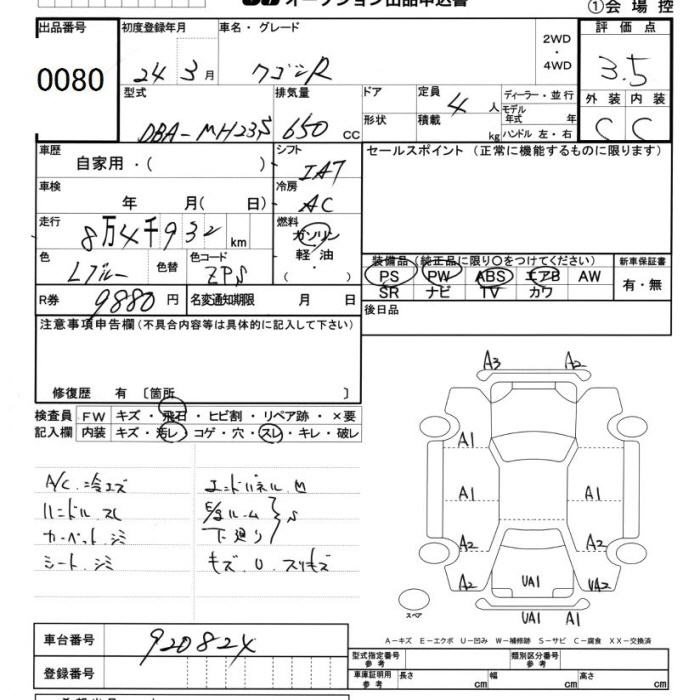 オークション出品申込書
①会場控
出品番号 初度登録年月 車名・グレード 2WD・4WD 評価点
0080 24年3月 ワゴンR 3.5
型式 排気量 ドア 定員 ディーラー・並行 外装 内装
DBA-MH23S 650 CC 形状 積載 4人 kg モデル年式 年 ハンドル 左・右 C C
車歴 自家用・( ) シフト IAT セールスポイント (正常に機能するものに限ります)
車検 年 月( 日) 冷房 AC
走行 8万4千932 km 燃料 ガソリン 軽油 ( ・ )
色 Lブルー 色替 色コード ZPS
装備品 (純正品に限り○をつけてください) 新車保証書
PS PW ABS エアB AW 有・無
SR ナビ TV カワ
R券 9880円 名変通知期限 月 日
後日品
注意事項申告欄(不具合内容等は具体的に記入して下さい)
修復歴 有 〔箇所 〕
検査員 FW キズ・飛石・ヒビ割・リペア跡・×要
記入欄 内装 キズ・汚レ・コゲ・穴・スレ・キレ・破レ
A/C 冷エズ エンドパネル M
ハンドル スレ E/gルーム
カーペット シミ 下廻り } S
シート シミ キズ U スリキズ
A3 A2
A1
A1 A1
A2 A2
A2 UA1 UA2
スペア UA1 A1
A−キズ E−エクボ U−凹み W−補修跡 S−サビ C−腐食 XX−交換済
車台番号 920824
登録番号
型式指定番号 参考 類別区分番号 参考
車庫証明用 参考 長さ cm 幅 cm 高さ cm